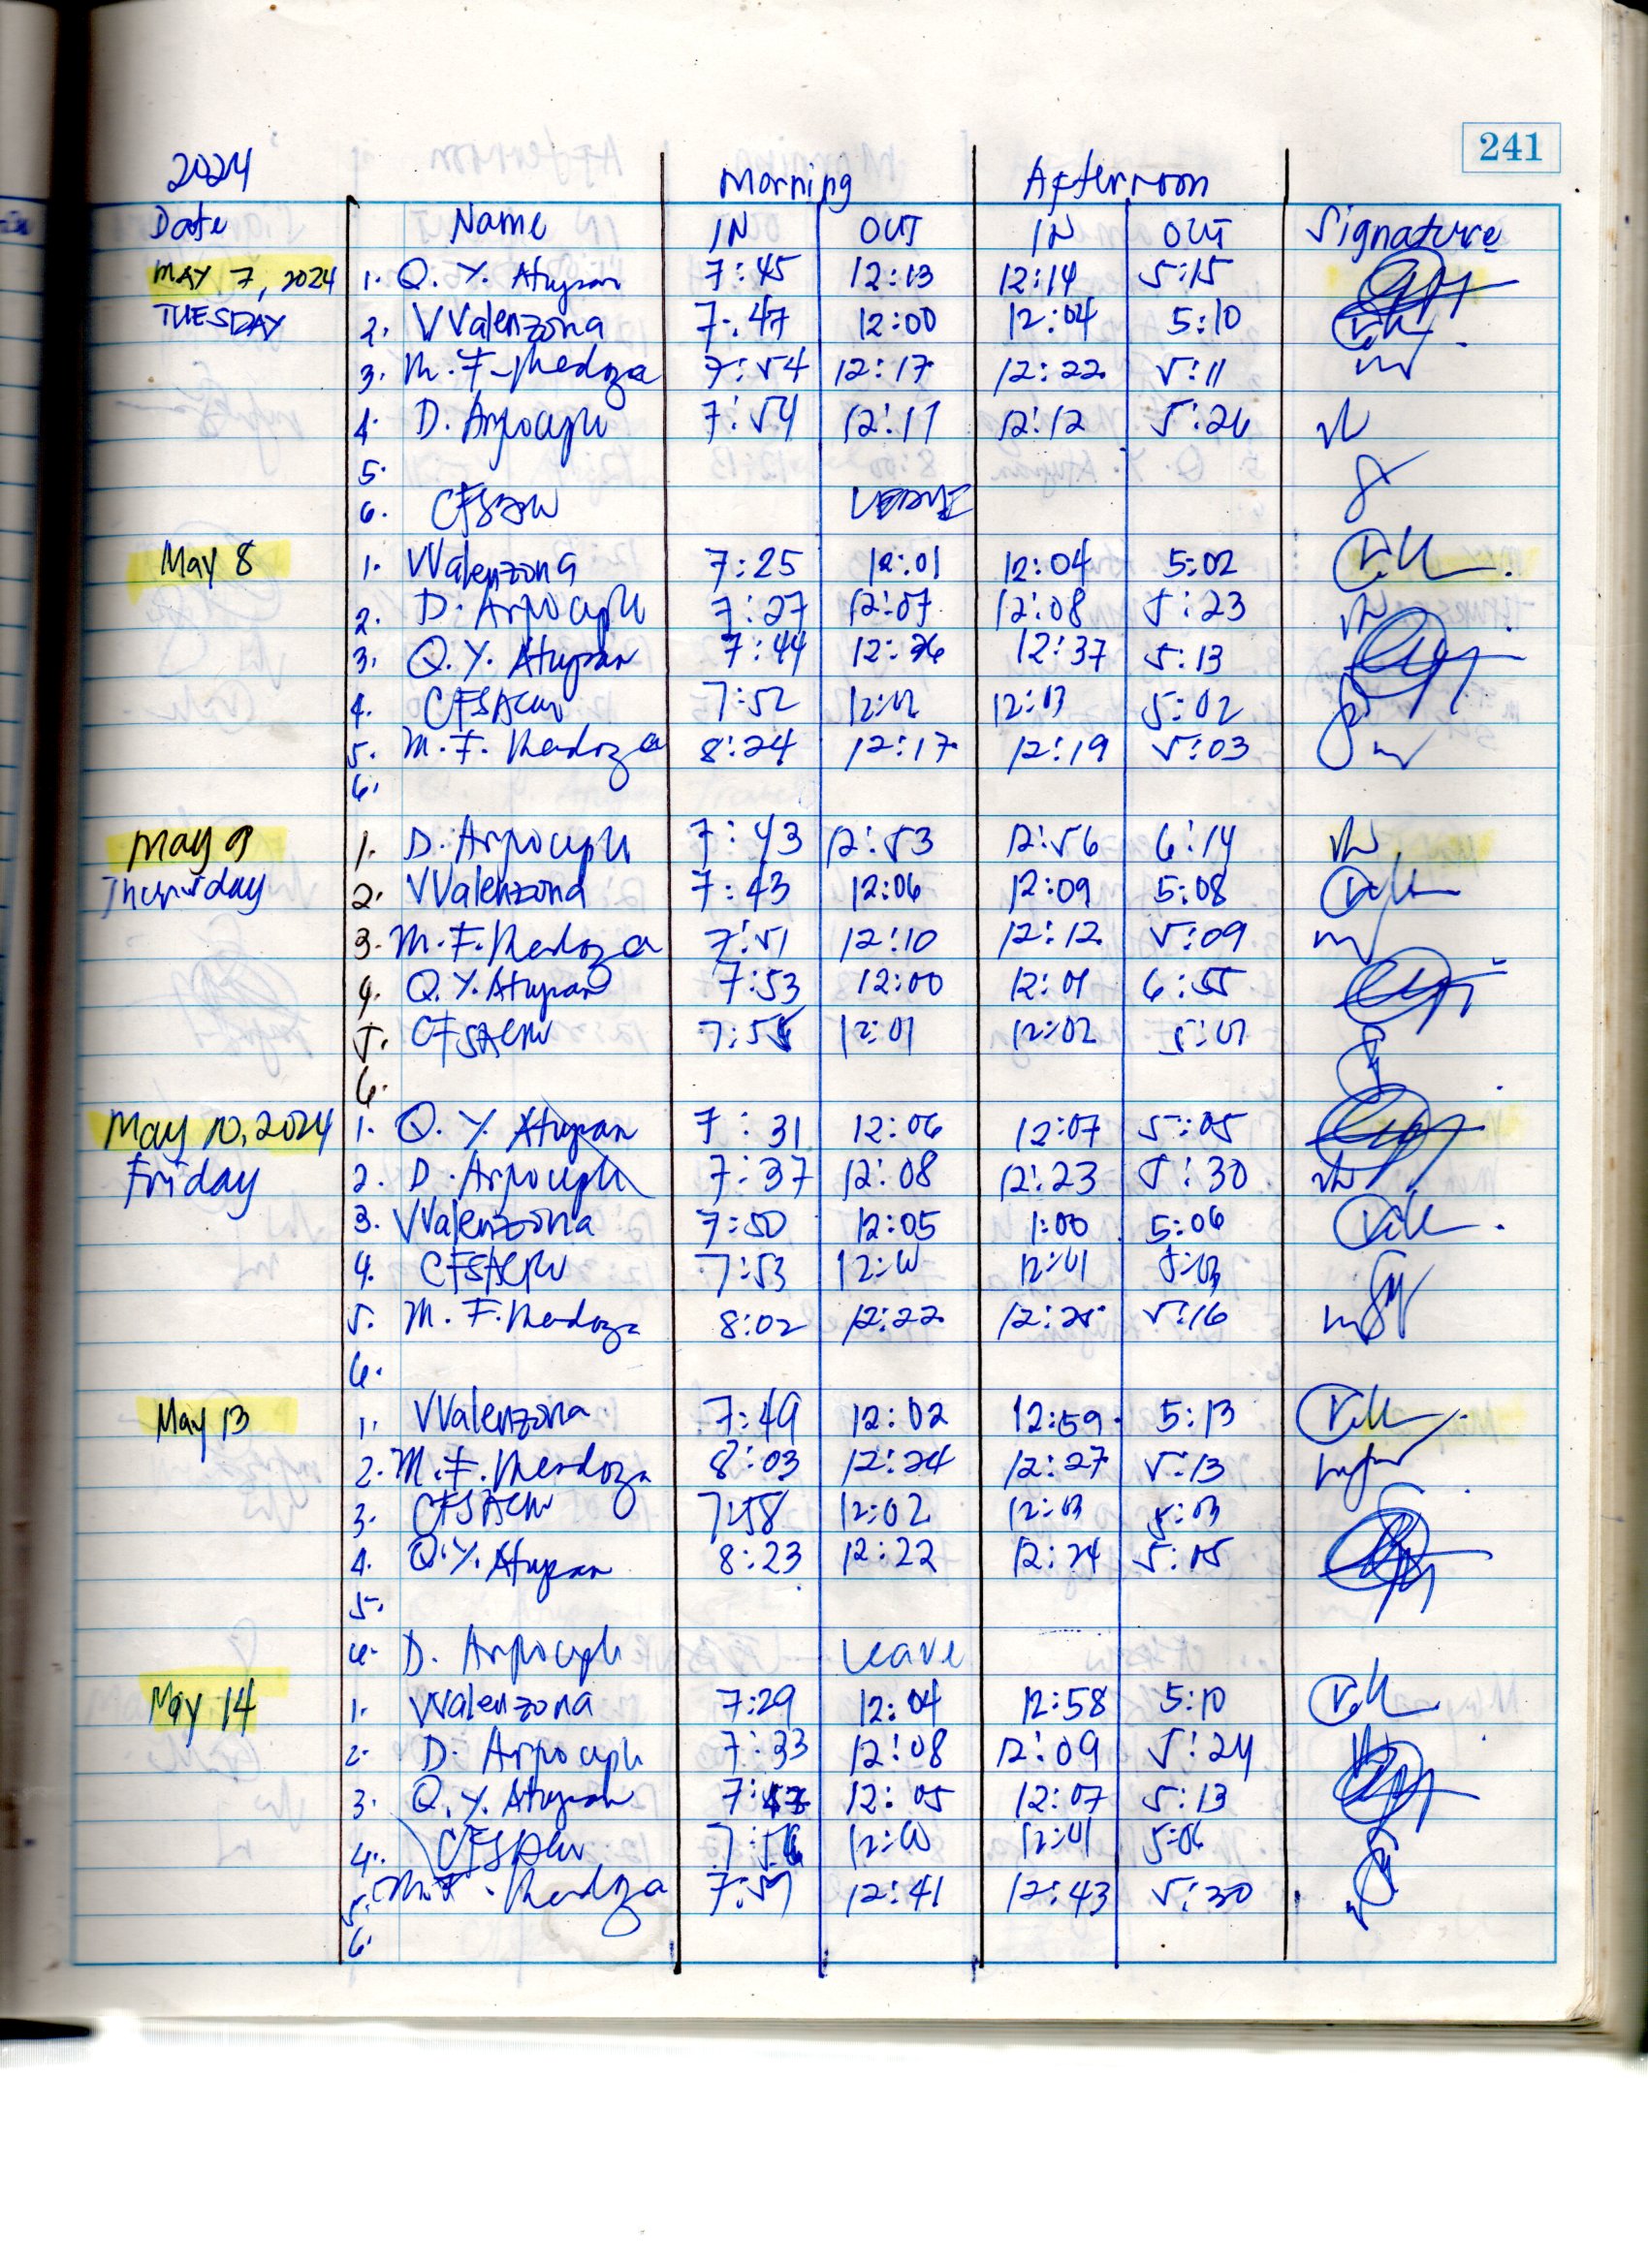 241
2024 Morning Afternoon
Date Name IN OUT IN OUT Signature
MAY 7, 2024 1. Q. Y. Atupan 7:45 12:13 12:14 5:15
TUESDAY 2. VValenzona 7:47 12:00 12:04 5:10
3. M. F. Mendoza 7:54 12:17 12:22 5:11
4. D. 7:54 12:11 12:12 5:26
5.
6.
May 8 1. VValenzona 7:25 12:01 12:04 5:02
2. D. 7:27 12:07 12:08 5:23
3. Q. Y. Atupan 7:44 12:36 12:37 5:13
4. 7:52 12:03 5:02
5. M. F. Mendoza 8:24 12:17 12:19 5:03
6.
May 9 1. D. 7:43 12:53 12:56 6:14
Thursday 2. VValenzona 7:43 12:06 12:09 5:08
3. M. F. Mendoza 7:51 12:10 12:12 5:09
4. Q. Y. Atupan 7:53 12:00 12:01 6:55
5. 12:01 12:02
6.
May 10, 2024 1. Q. Y. Atupan 7:31 12:06 12:07 5:05
Friday 2. D. 7:37 12:08 12:23 5:30
3. VValenzona 7:50 12:05 1:00 5:06
4. 7:53 12:00 12:01 5:03
5. M. F. Mendoza 8:02 12:22 5:16
6.
May 13 1. VValenzona 7:49 12:02 12:59 5:13
2. M. F. Mendoza 8:03 12:24 12:27 5:13
3. 7:58 12:02 12:03 5:03
4. Q. Y. Atupan 8:23 12:22 12:24 5:05
5.
6. D. Leave
May 14 1. VValenzona 7:29 12:04 12:58 5:10
2. D. 7:33 12:08 12:09 5:24
3. Q. Y. Atupan 12:05 12:07 5:13
4. 12:00 12:01 5:06
5. M. F. Mendoza 12:41 12:43 5:30
6.